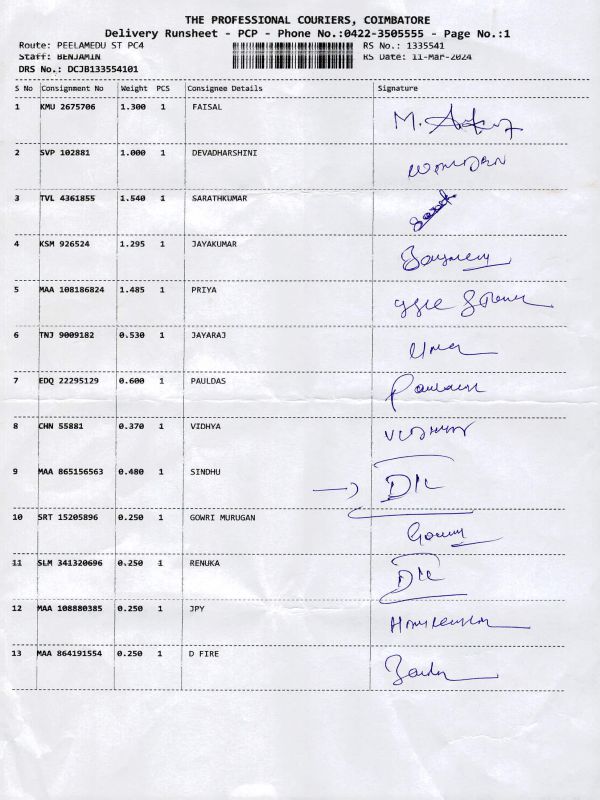 THE PROFESSIONAL COURIERS, COIMBATORE
Delivery Runsheet - PCP - Phone No.:0422-3505555 - Page No.:1
Route: PEELAMEDU ST PC4 RS No.: 1335541
Staff: BENJAMIN RS Date: 11-Mar-2024
DRS No.: DCJB133554101
S No Consignment No Weight PCS Consignee Details Signature
1 KMU 2675706 1.300 1 FAISAL
2 SVP 102881 1.000 1 DEVADHARSHINI
3 TVL 4361855 1.540 1 SARATHKUMAR
4 KSM 926524 1.295 1 JAYAKUMAR
5 MAA 108186824 1.485 1 PRIYA
6 TNJ 9009182 0.530 1 JAYARAJ
7 EDQ 22295129 0.600 1 PAULDAS
8 CHN 55881 0.370 1 VIDHYA
9 MAA 865156563 0.480 1 SINDHU
10 SRT 15205896 0.250 1 GOWRI MURUGAN
11 SLM 341320696 0.250 1 RENUKA
12 MAA 108880385 0.250 1 JPY
13 MAA 864191554 0.250 1 D FIRE